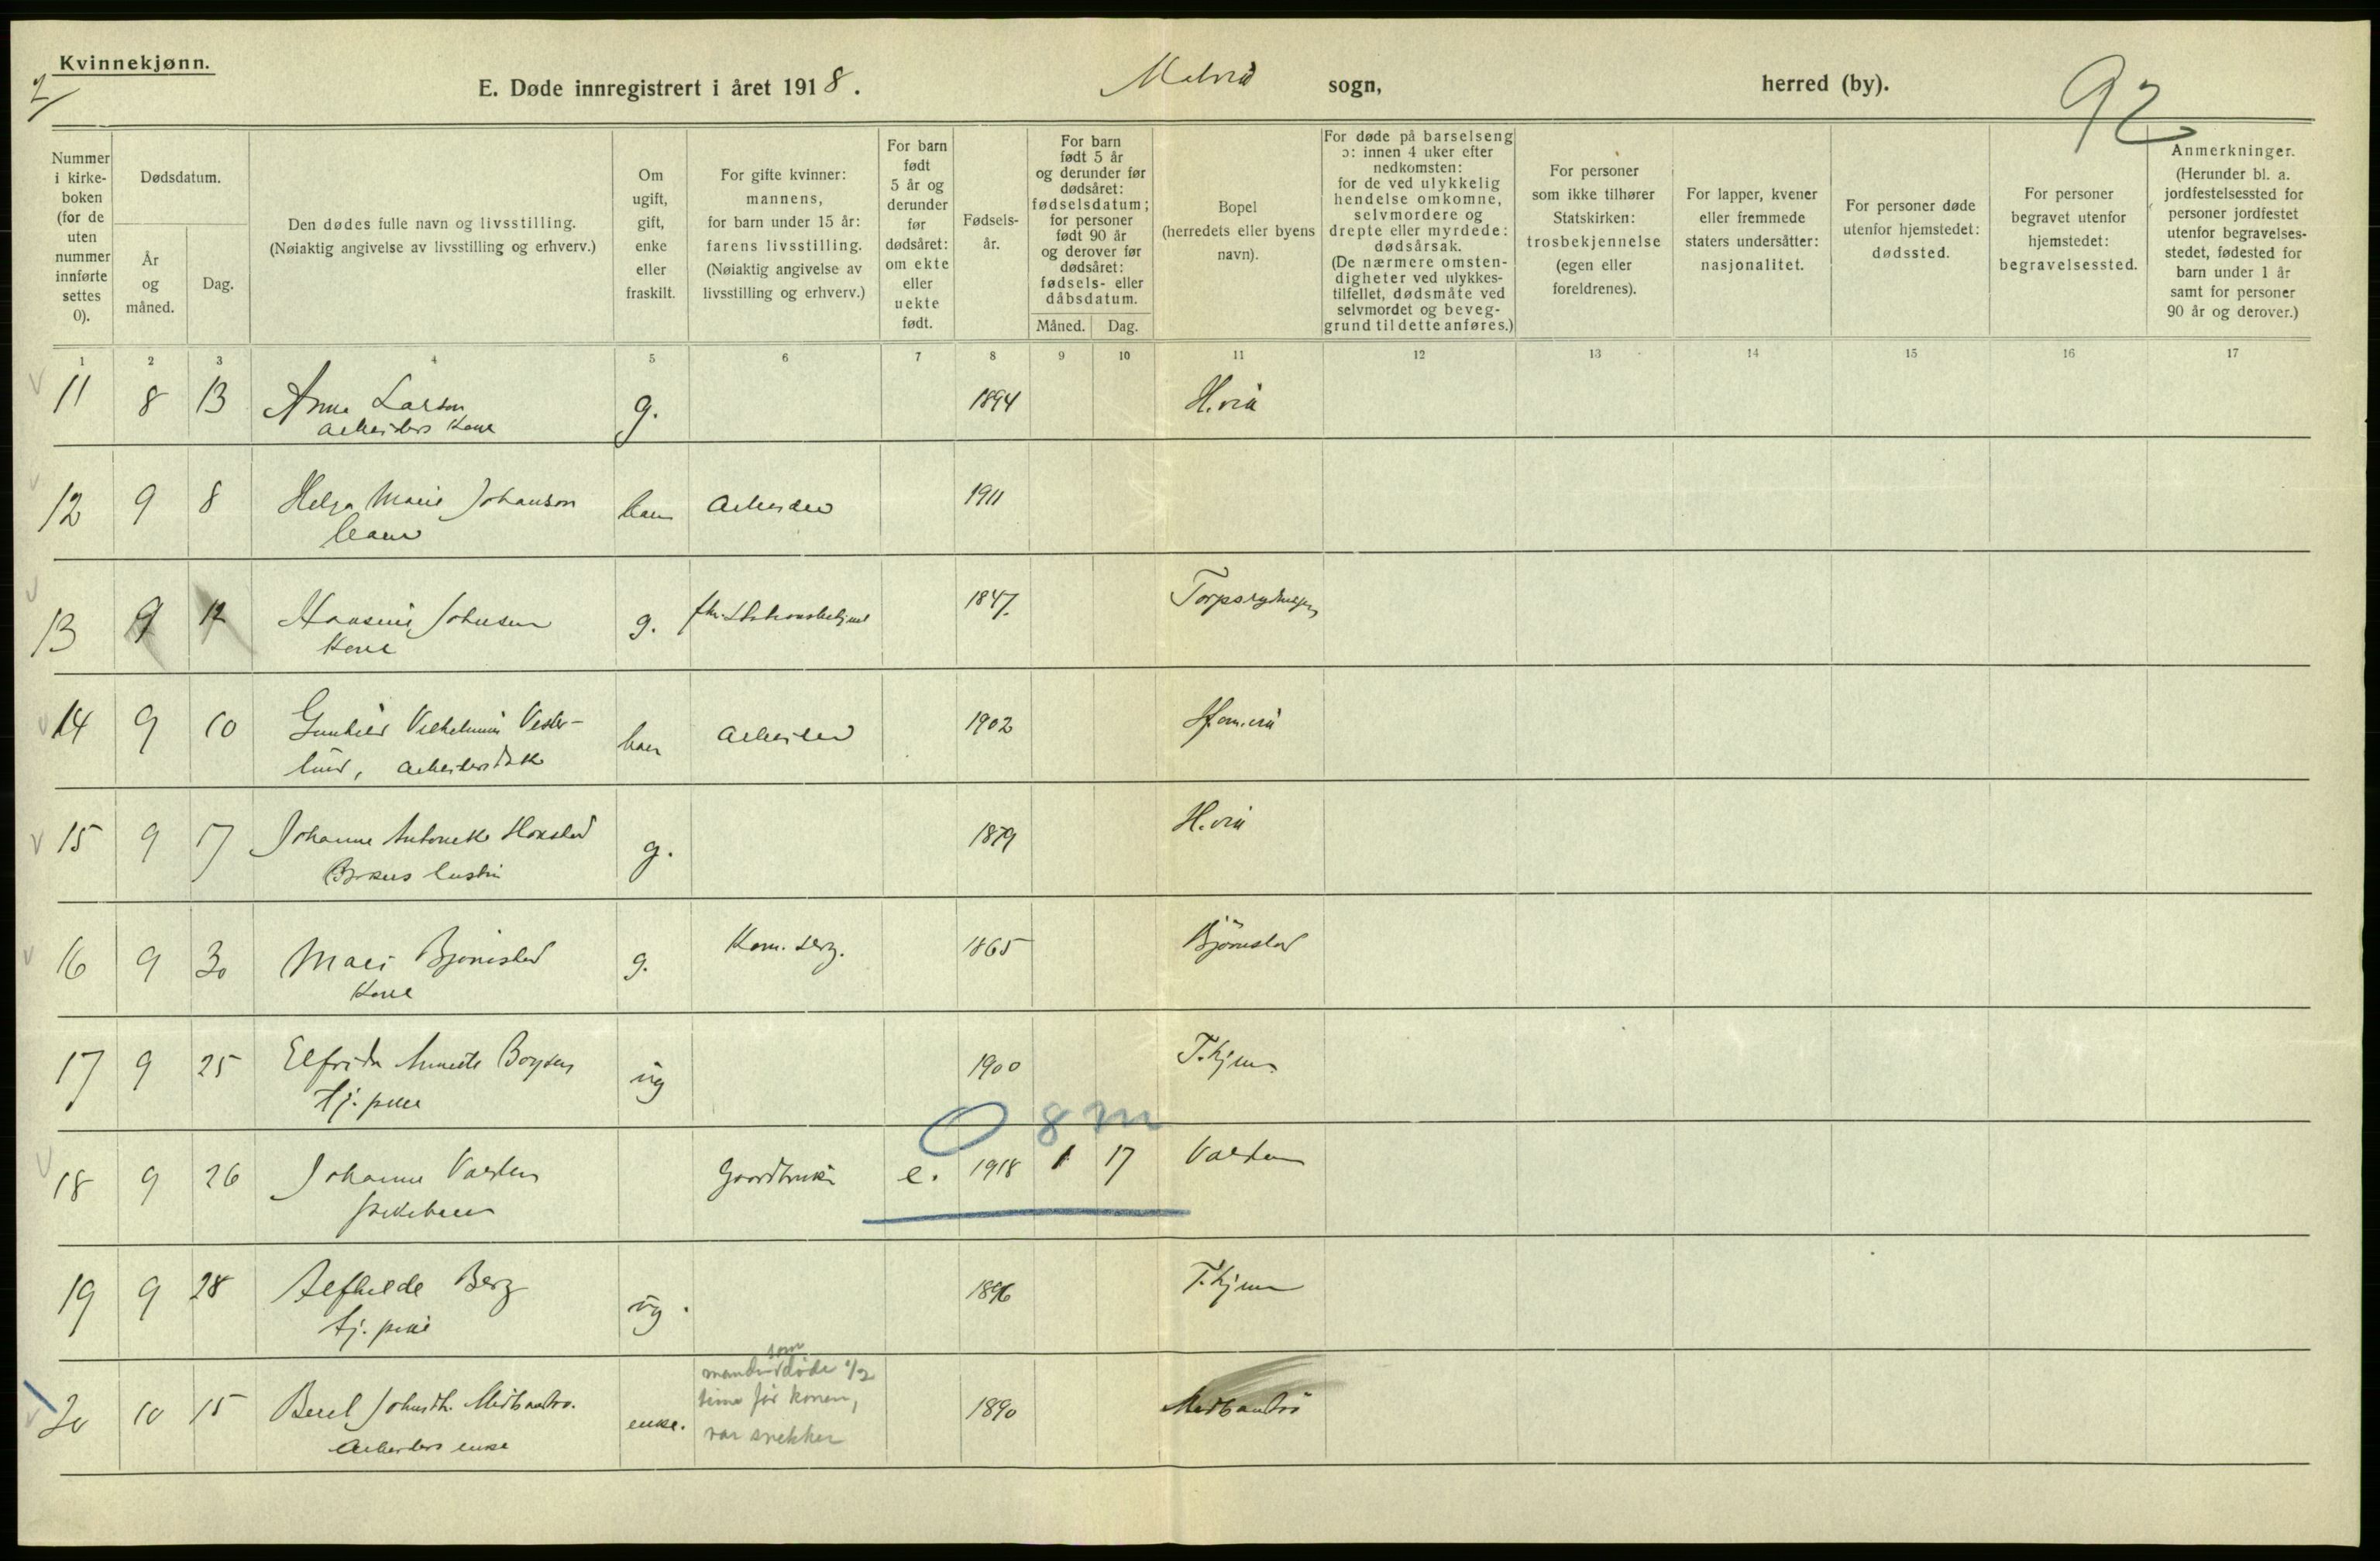 Kvinnekjønn.
2/
E. Døde innregistrert i året 1918. Malvik sogn, herred (by).
92
Nummer i kirke-boken (for de uten nummer innførte settes 0).
Dødsdatum.
År og måned.
Dag.
Den dødes fulle navn og livsstilling.
(Nøiaktig angivelse av livsstilling og erhverv.)
Om ugift, gift, enke eller fraskilt.
For gifte kvinner: mannens, for barn under 15 år: farens livsstilling.
(Nøiaktig angivelse av livsstilling og erhverv.)
For barn født 5 år og derunder før dødsåret: om ekte eller uekte født.
Fødsels-år.
For barn født 5 år og derunder før dødsåret: fødselsdatum; for personer født 90 år og derover før dødsåret: fødsels- eller dåbsdatum.
Måned. Dag.
Bopel (herredets eller byens navn).
For døde på barselseng ɔ: innen 4 uker efter nedkomsten: for de ved ulykkelig hendelse omkomne, selvmordere og drepte eller myrdede: dødsårsak.
(De nærmere omsten-digheter ved ulykkes-tilfellet, dødsmåte ved selvmordet og beveg-grund til dette anføres.)
For personer som ikke tilhører Statskirken: trosbekjennelse (egen eller foreldrenes).
For lapper, kvener eller fremmede staters undersåtter: nasjonalitet.
For personer døde utenfor hjemstedet: dødssted.
For personer begravet utenfor hjemstedet: begravelsessted.
Anmerkninger.
(Herunder bl. a. jordfestelsessted for personer jordfestet utenfor begravelses-stedet, fødested for barn under 1 år samt for personer 90 år og derover.)
1 2 3 4 5 6 7 8 9 10 11 12 13 14 15 16 17
11 8 13 Anna Larsen g. 1894 H.vik
arbeiders kone
12 9 8 Helga Marie Johanson barn Arbeider 1911
barn
13 9 12 Hansine Johnsen g. 1847.
kone
14 9 10 Gunhild Vilhelmine Vester- barn Arbeider 1902 Hom.vik
lund, arbeiders
15 9 17 Johanne Antonette g. 1879 H.vik
16 9 30 Mari Bjørnstad g. Kom. serg. 1865 Bjørnstad
kone
17 9 25 Elfrida Annette ug 1900 T.hjem
tj. pike
0 8 m
18 9 26 Johanne Gaardbruker e. 1918 1 17
pikebarn
19 9 28 Alfhilde Berg ug. 1896 T.hjem
tj. pike
20 10 15 Beret enke. 1890
Arbeiders enke
som
manden døde 1/2
time før konen,
var snekker